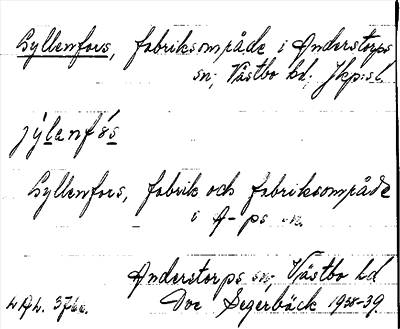 Gyllenfors, fabriksområde i Anderstorps
sn, Västbo hd, Jkp:s l
jýlanfós
Gyllenfors, fabrik och fabriksområde
i A-ps sn.
Anderstorps sn, Västbo hd
Ove Segerbäck 1938-39.